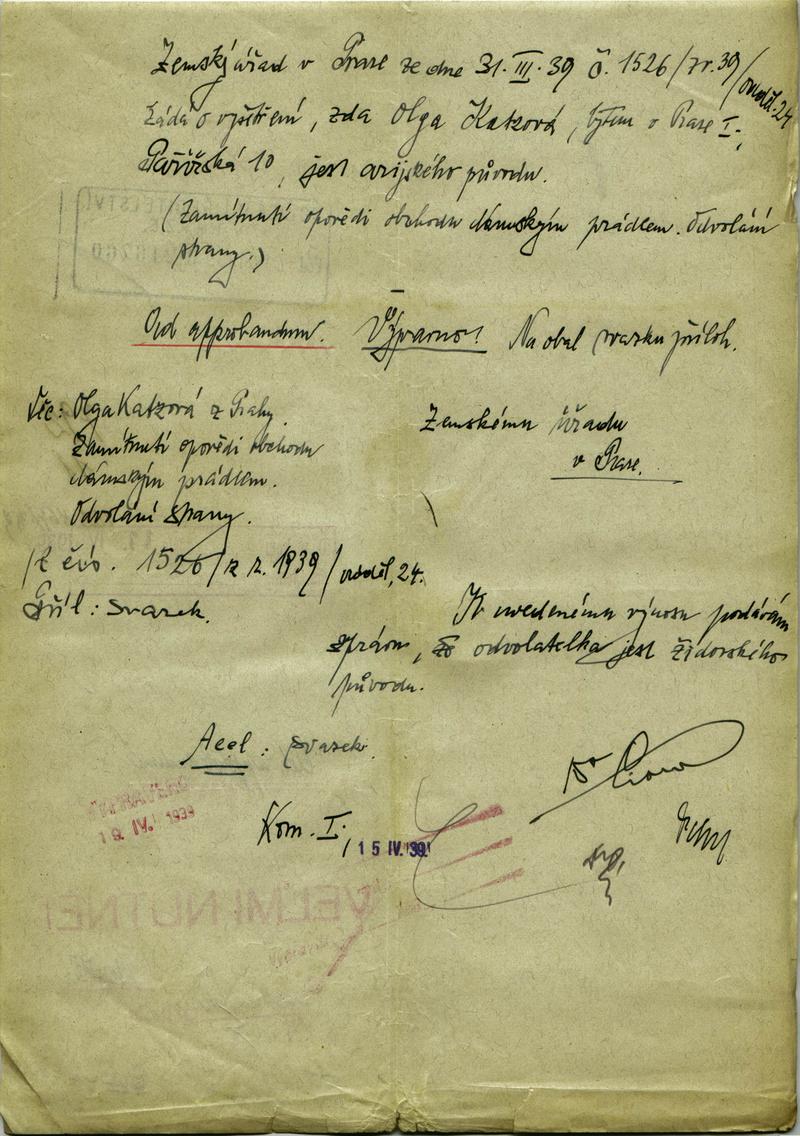 Zemský úřad v Praze ze dne 31.III.39 č. 1526/zr.39/odděl.24
žádá o vyšetření, zda Olga Katzová, bytem v Praze I.,
Pařížská 10, jest arijského původu.
(Zamítnutí opovědi obchodu dámským prádlem. Odvolání
strany.)
Ad approbandum. Výpravno! Na obal svazku příloh.
Věc: Olga Katzová z Prahy.
Zamítnutí opovědi obchodu
dámským prádlem.
Odvolání strany.
/K čís. 1526/z r. 1939/odděl.24.
Příl: svazek.
Zemskému úřadu
v Praze.
K uvedenému výnosu podávám
zprávu, že odvolatelka jest židovského
původu.
Acel: svazek.
19. IV. 1939
Kom. I.,
15 IV. 39
VELMI NUTNÉ!